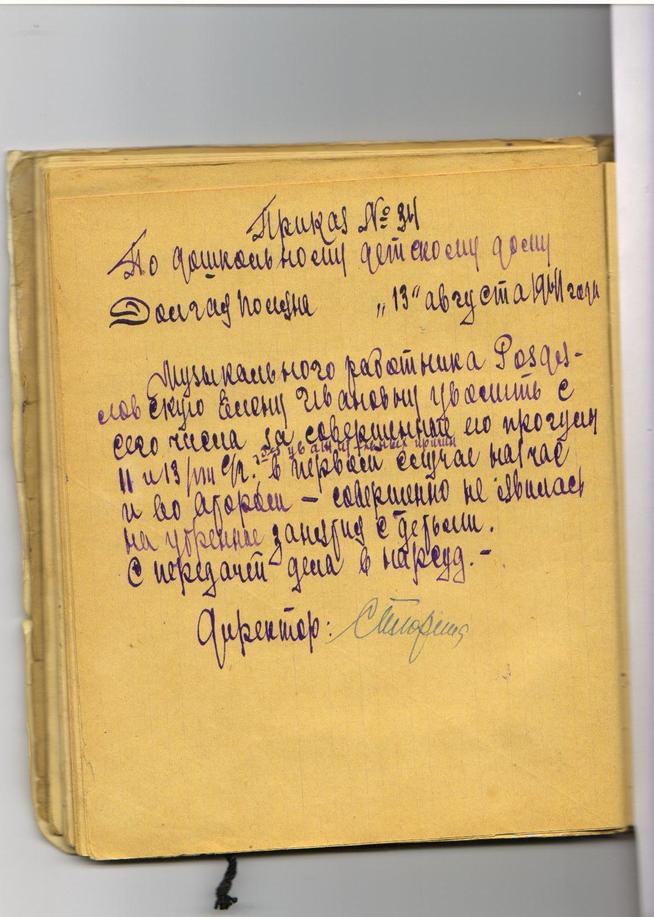 Приказ № 34
По дошкольному детскому дому
"13" августа 1941 года
Музыкального работника
скую Елену Ивановну уволить с
сего числа за совершенный ею прогулы
без уважительных причин
11 и 13/VIII с/г. в первом случае на час
и во втором – совершенно не явилась
на утренние занятия с детьми.
С передачей дела в нарсуд. –
Директор: